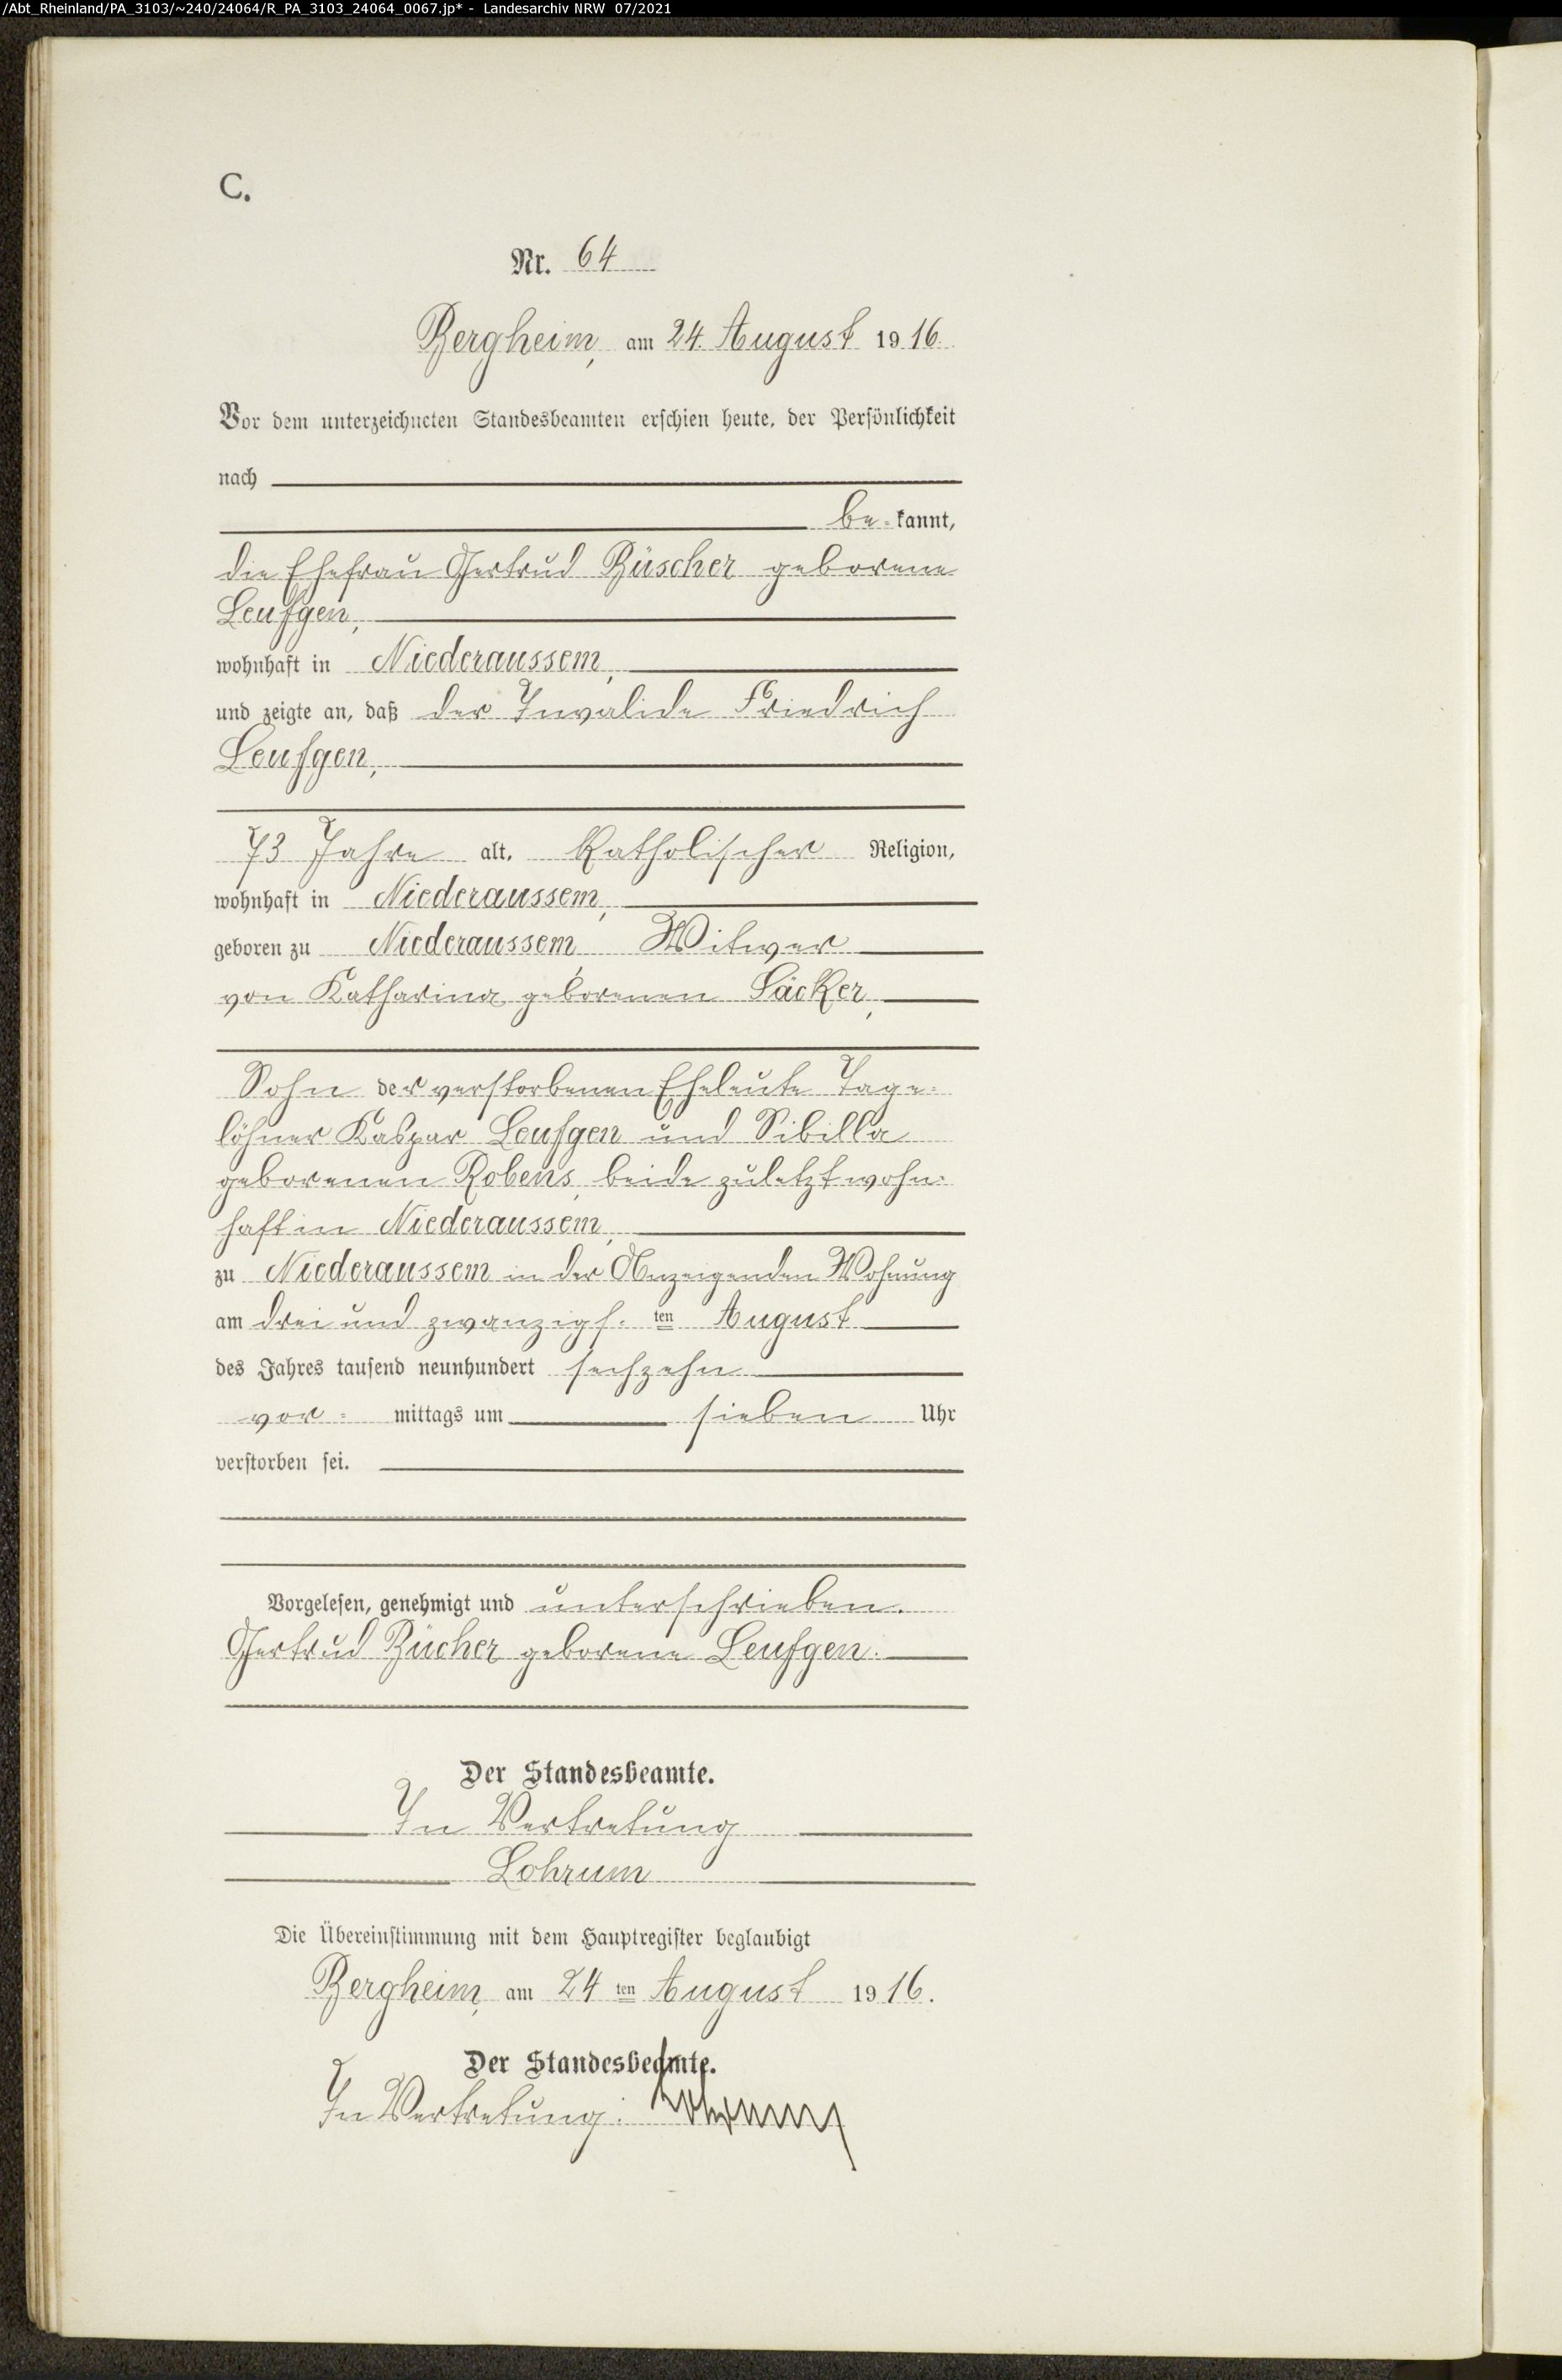 /Abt_Rheinland/PA_3103/~240/24064/R_PA_3103_24064_0067.jp* - Landesarchiv NRW 07/2021
C.
Nr. 64
Bergheim, am 24. August 1916.
Vor dem unterzeichneten Standesbeamten erschien heute, der Persönlichkeit
nach
be=kannt,
die Ehefrau Gertrud Büscher geborene
Leufgen,
wohnhaft in Niederaussem,
und zeigte an, daß der Invalide Friedrich
Leufgen,
73 Jahre alt, Katholischer Religion,
wohnhaft in Niederaussem,
geboren zu Niederaussem, Witwer
von Katharina geborenen Säcker,
Sohn der verstorbenen Eheleute Tage=
löhner Kaspar Leufgen und Sibilla
geborenen Robens, beide zuletzt wohn=
haft in Niederaussem,
zu Niederaussem in der Anzeigenden Wohnung
am drei und zwanzigs.ten August
des Jahres tausend neunhundert sechzehn
vor= mittags um sieben Uhr
verstorben sei.
Vorgelesen, genehmigt und unterschrieben.
Gertrud Bücher geborene Leufgen.
Der Standesbeamte.
In Vertretung
Lohrum
Die Übereinstimmung mit dem Hauptregister beglaubigt
Bergheim, am 24ten August 1916.
Der Standesbeamte.
In Vertretung: Lohrum